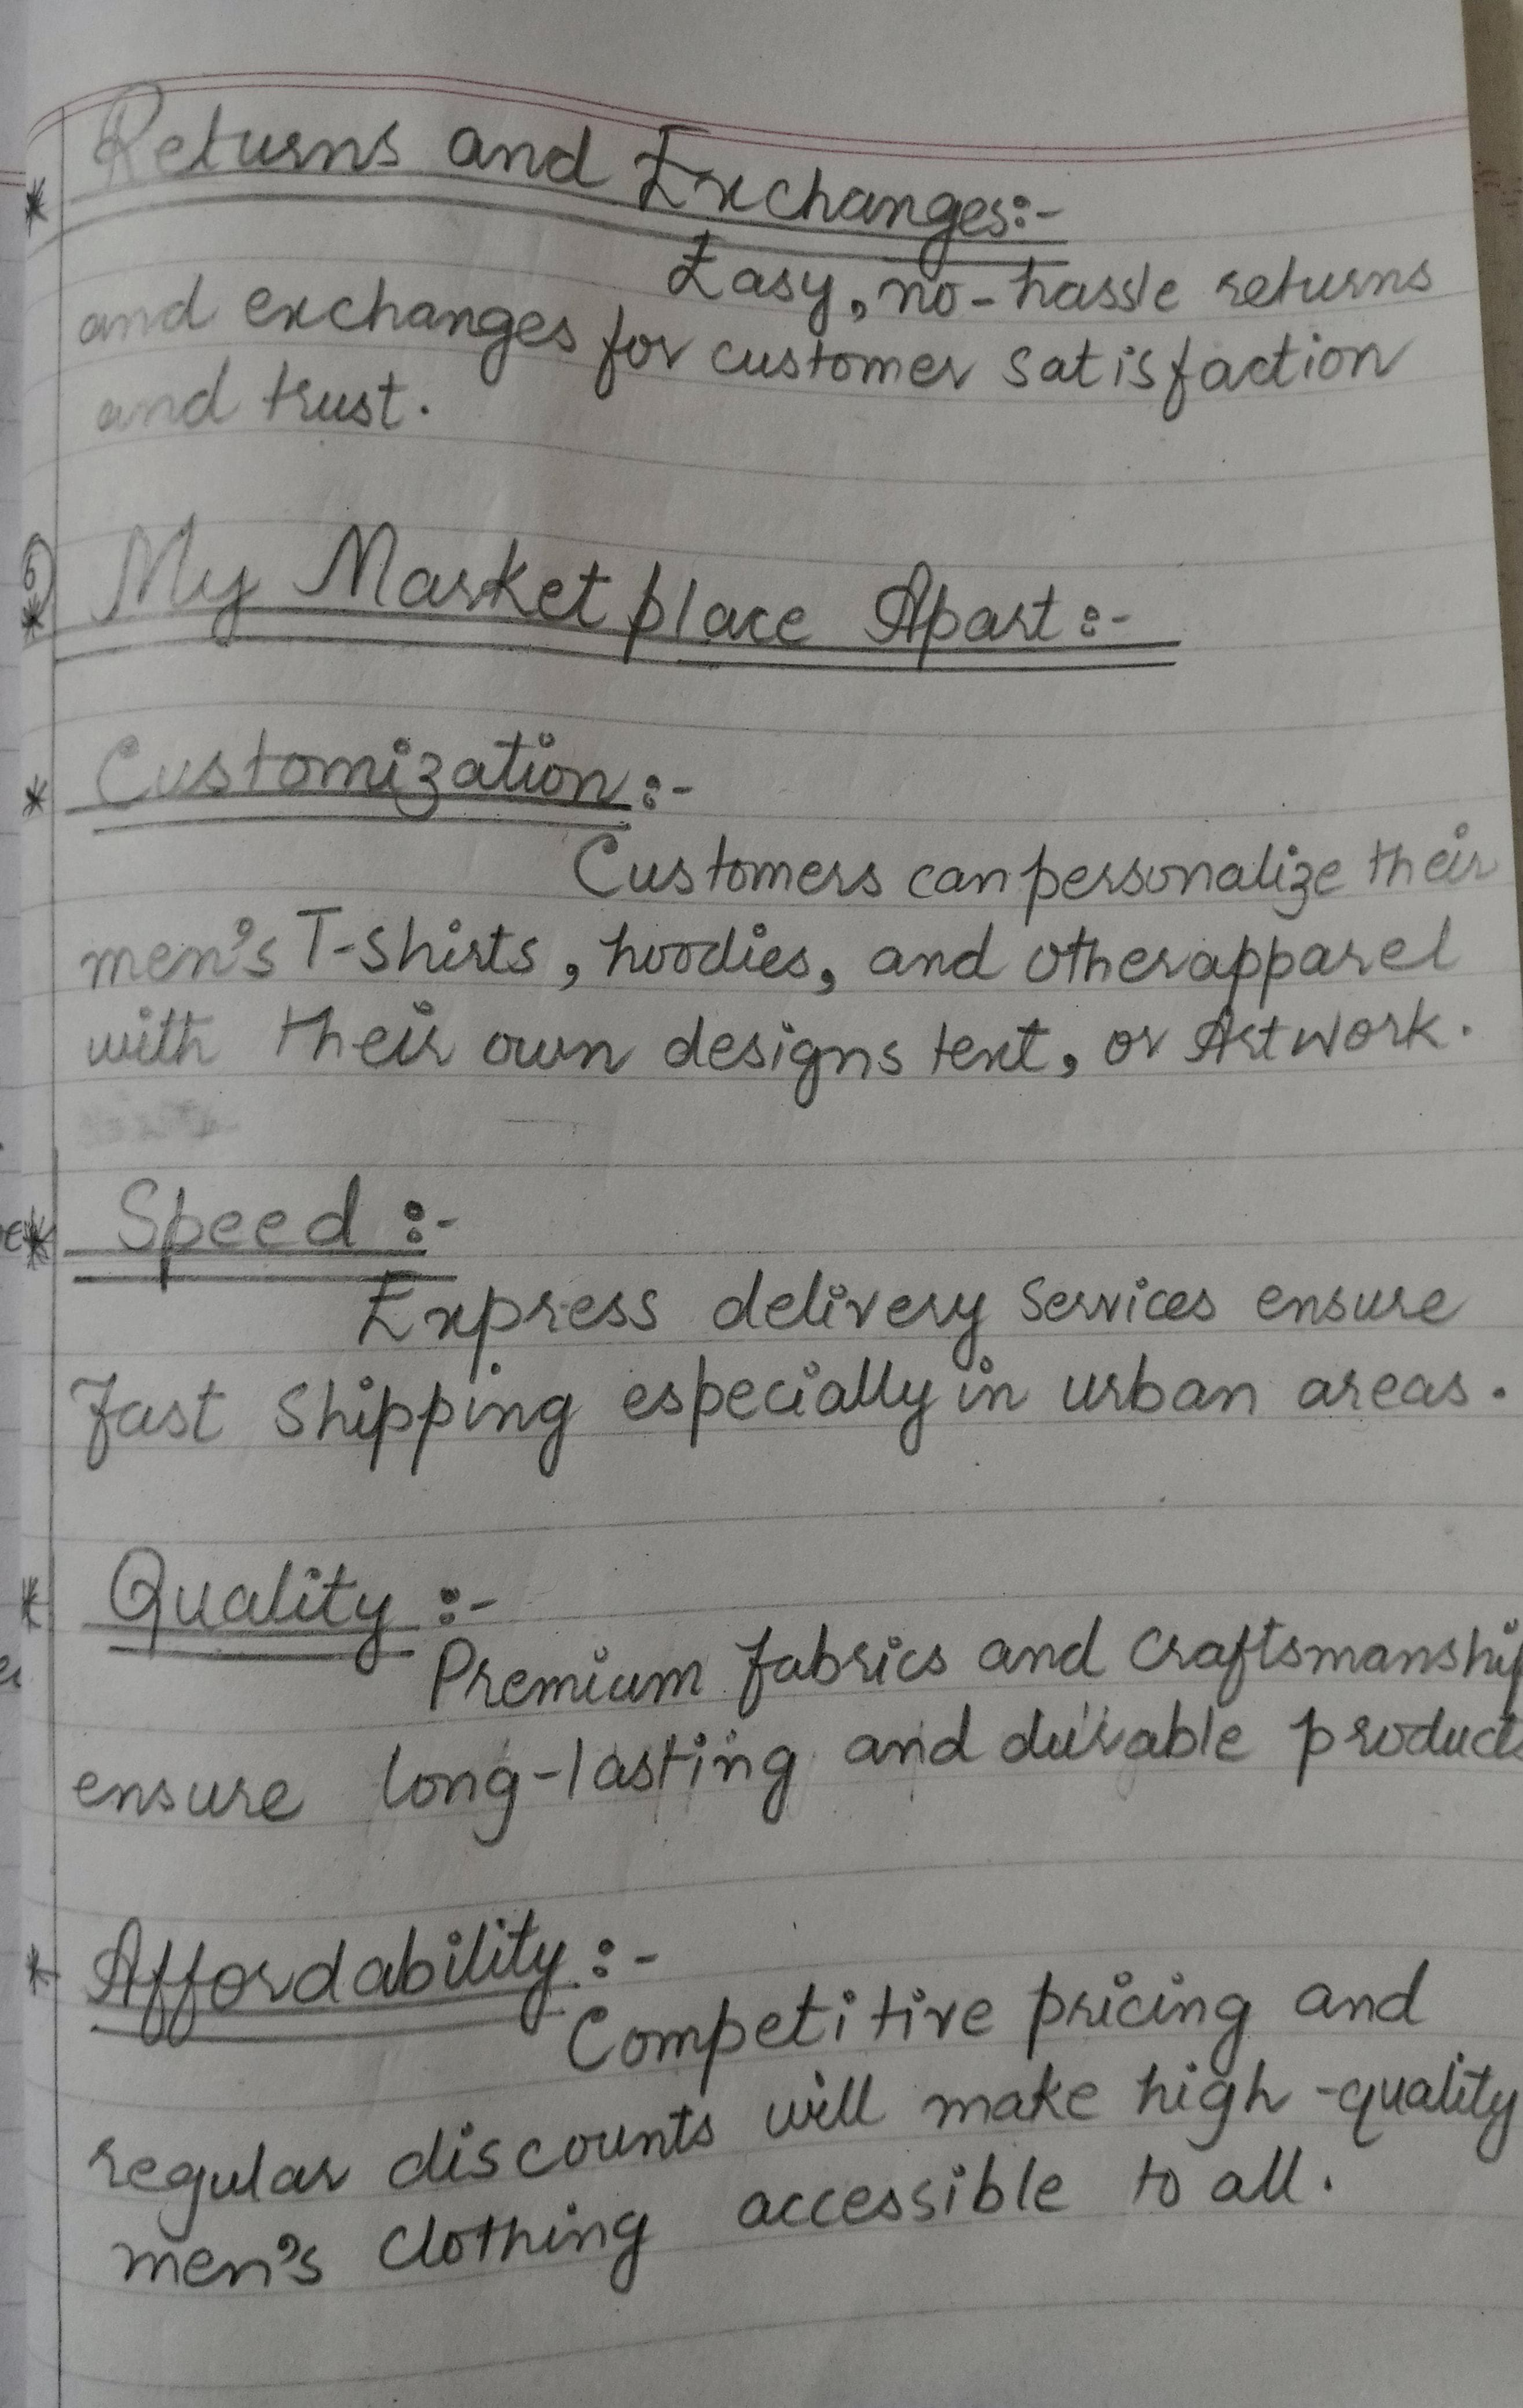 * Returns and Exchanges:-
Easy, no-hassle returns
and exchanges for customer satisfaction
and trust.
6
* My Marketplace Apart:-
* Customization:-
Customers can personalize their
men's T-shirts, hoodies, and other apparel
with their own designs text, or Artwork.
* Speed :-
Express delivery Services ensure
fast Shipping especially in urban areas.
* Quality :-
Premium fabrics and craftsmanship
ensure long-lasting and durable products
* Affordability :-
Competitive pricing and
regular discounts will make high-quality
men's clothing accessible to all.